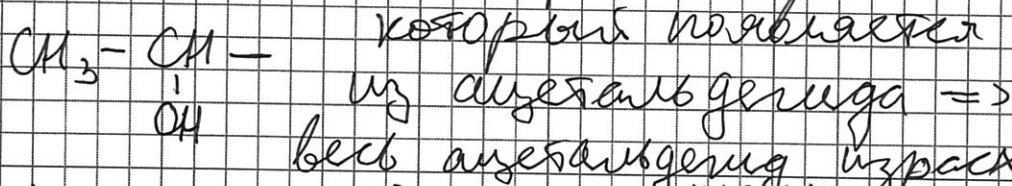 CH₃ – CH – который появляется
из ацетальдегида =>
OH
весь ацетальдегид израсх